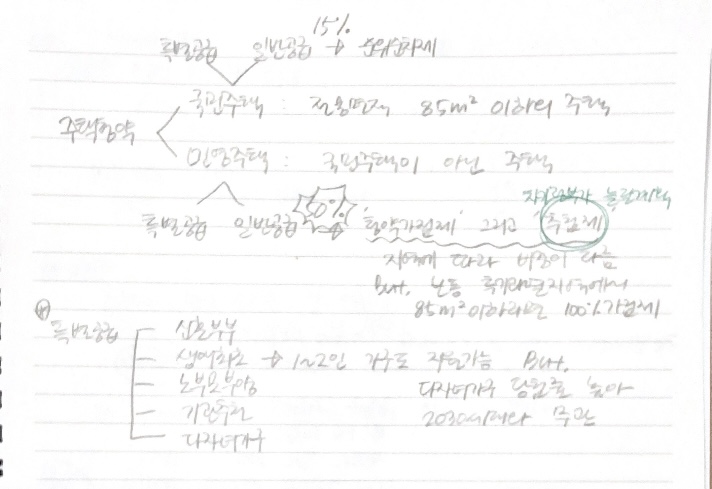 15%
특별공급 일반공급 → 순위순차제
국민주택 : 전용면적 85m² 이하의 주택
주택청약
민영주택 : 국민주택이 아닌 주택
특별공급 일반공급 50% '청약가점제' 그리고 추첨제
지역에 따라 비중이 다름
But, 보통 투기과열지역에서
85m²이하라면 100% 가점제
특별공급
신혼부부
생애최초 → 1~2인 가구도 지원가능 But,
노부모부양 다자녀가구 당첨률 높아
기관추천 2030세대와 무관
다자녀가구